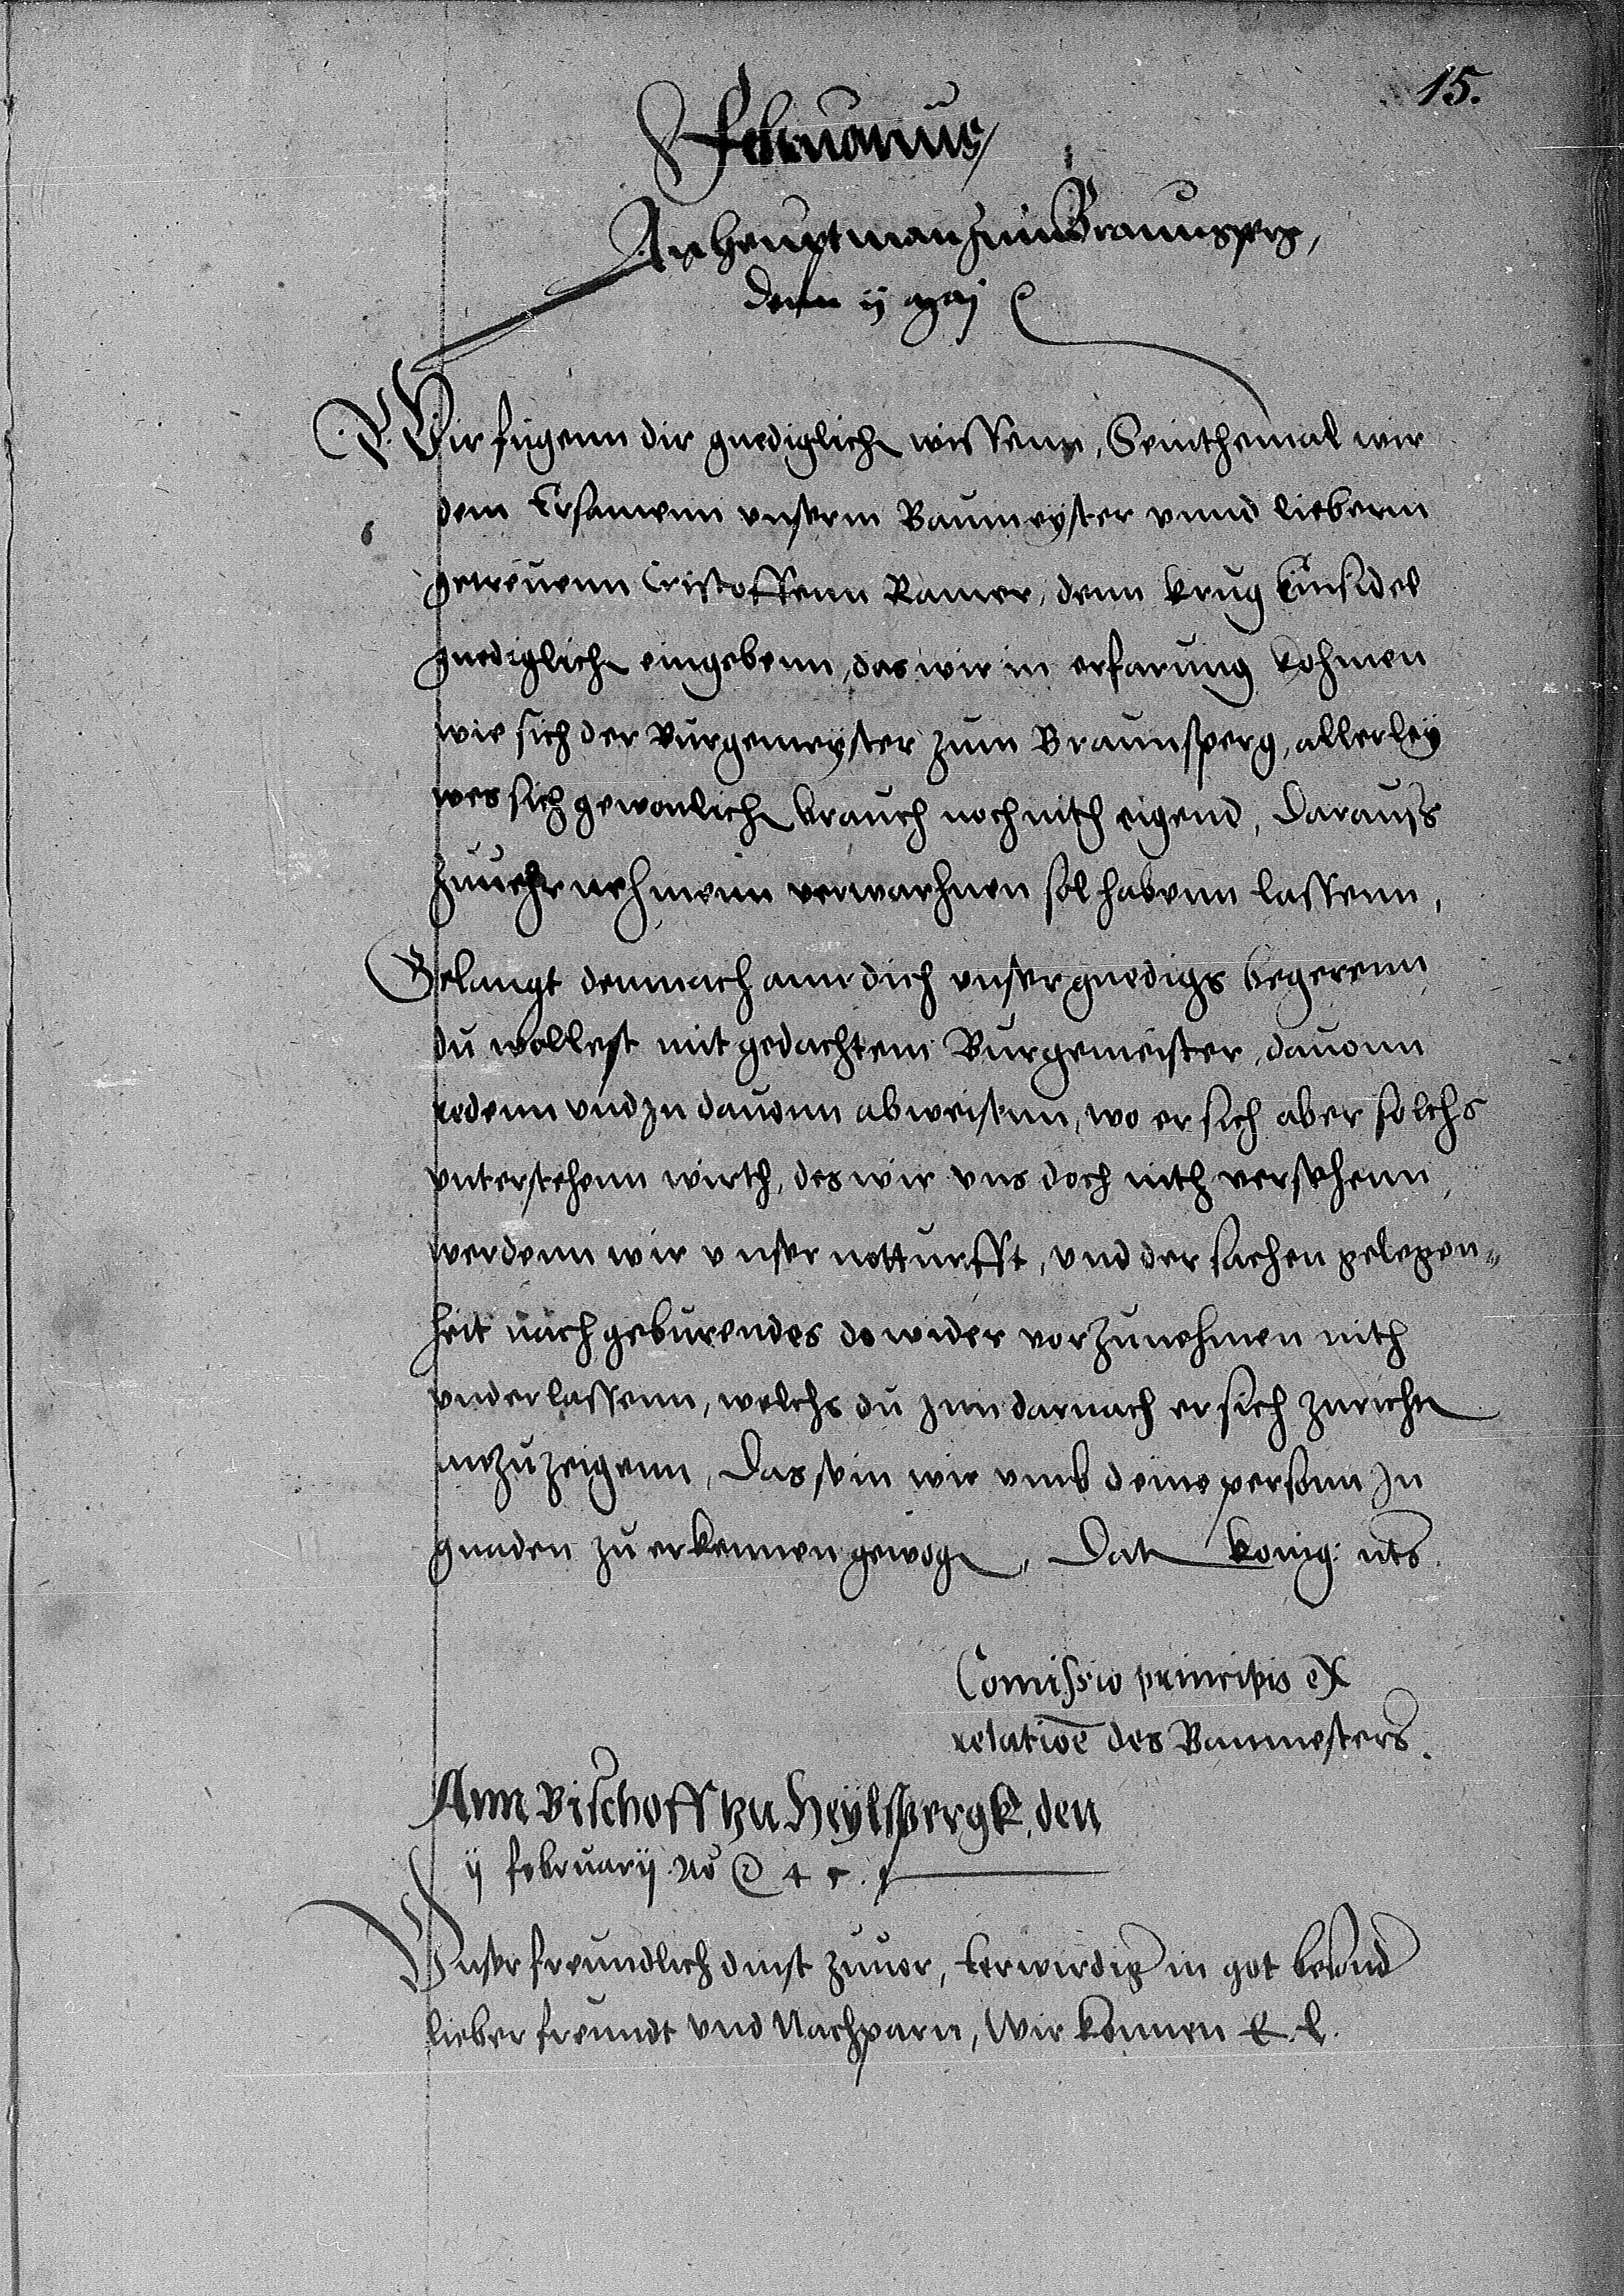 15.
Februarius
An Heuptman zum Braunsperg,
denn ij
P. P. Wir fugenn dir gnediglich wissenn, Seinthemal wir
dem Ersamenn unserm Baumeyster unnd liebenn
getreuenn Cristoffenn Ramer, denn krug Einsidel
gnediglich eingebenn, das wir in erfarung kohmen
wie sich der Burgemeyster zum Braunsperg, allerley
wes sich gewonlich brauch noch nith eigend, darauss
zuuehrnehmenn verwarhnen sol habenn lassenn,
Gelangt demnach ann dich unser gnedigs begerenn
du wollest mit gedachtem Burgemeister, dauonn
redenn und in dauonn abweisenn, wo er sich aber solchs
unterstehenn wirth, des wir uns doch nith versehenn,
werdenn wir unser notturfft, und der sachen gelegen-
heit nach geburendes dowider vorzunehmen nith
underlassenn, welchs du jm darnach er sich zurichten
anzuzeigenn, Das sein wir umb deine person jn
gnaden zu erkennen gewogen, Dat konig: uts.
Comissio principis ex
relatioe des Baumesters.
Ann Bischoff zu Heylspergk, den
ij february
Unser freundlich dinst zuuor, Eerwirdig in got besond
lieber freundt und Nachparn, Wir konnen E. L.